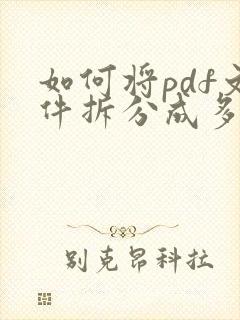 如何将pdf文
件拆分成多
别克昂科拉